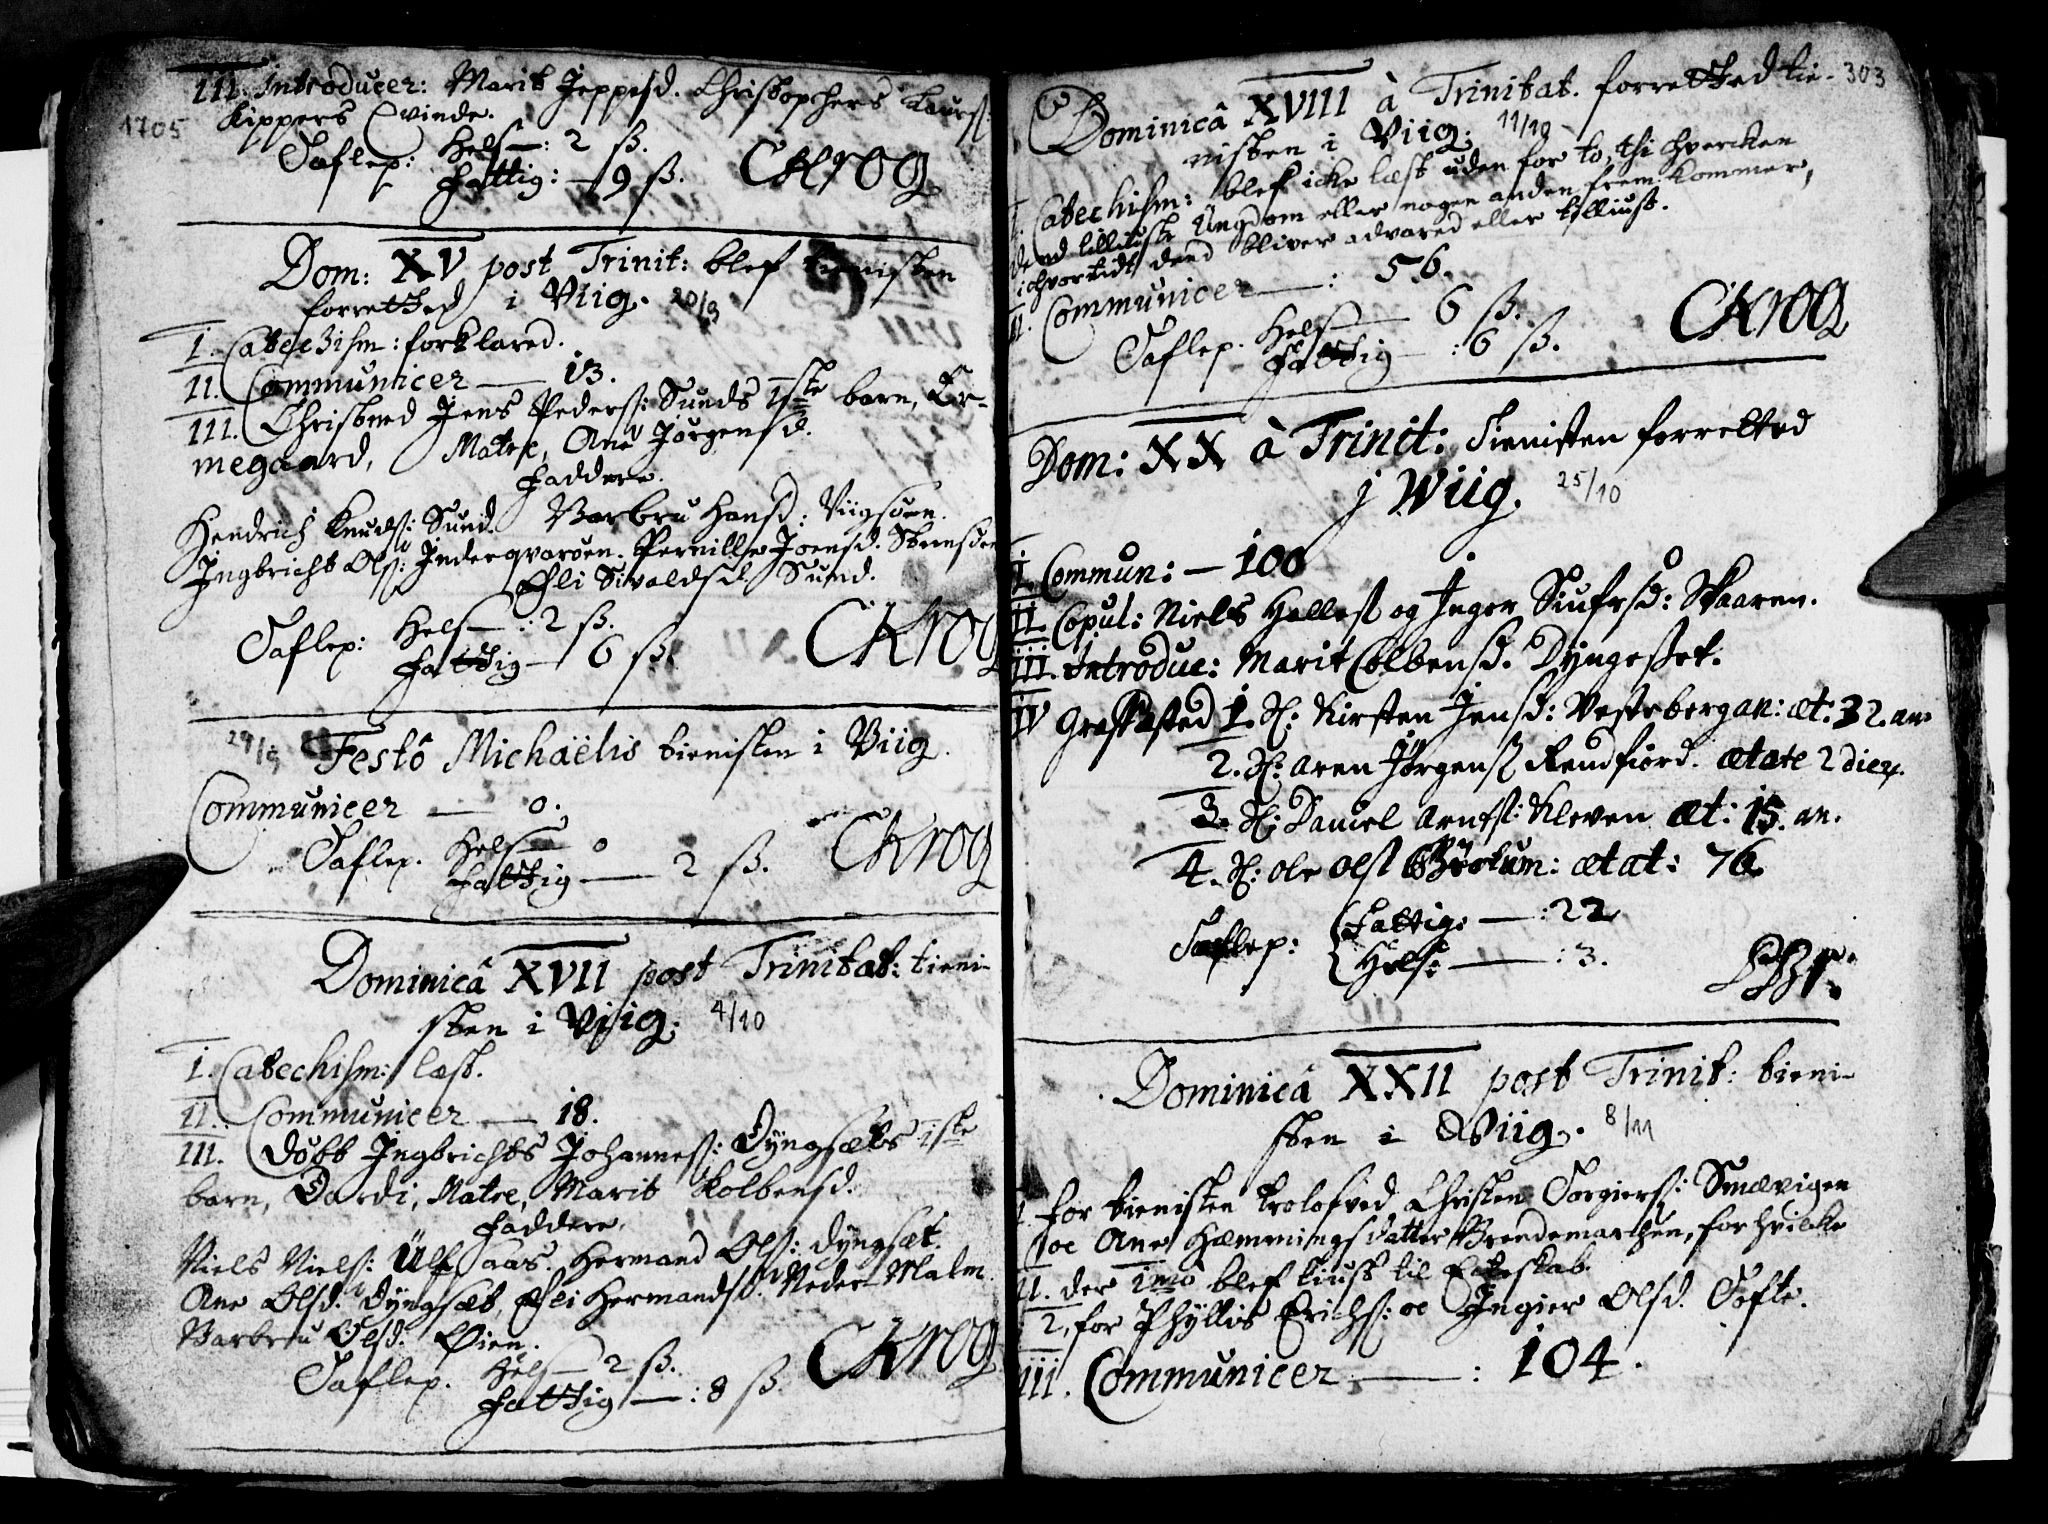 1705
III. Introducer: Marit Jeppesd. Christophers Laurs:
Kippers Qvinde.
Taflep: Hels —: 2 ß.
Fattig: — 9 ß. CKrog
Dom: XV post Trinit: blef tienisten
forretted i Viig. 20/9
I. Catechism: forklared.
II. Communicer — 13.
III. Christned Jens Peders: Sunds 1ste barn, Er-
megaard, Matre, Ane Jørgensd.
Faddere.
Hendrich Knuds: Sund. Barbru Hansd: Viigsøen.
Ingbricht Ols: Inderqvarøen. Pernille Joensd.
Eli Sivaldsd. Sund.
Taflep: Hels —: 2 ß.
Fattig — 6 ß. CKrog
29/9 Festô Michaëlis tienisten i Viig.
Communicer — 0.
Taflep. Hels — 0
Fattig — 2 ß. CKrog
Dominicâ XVII post Trinitat: tieni-
sten i Viig. 4/10
I. Catechism: læst.
II. Communicer — 18.
III. Døbt Ingbrichts Johannes: Dyngsæts 1ste
barn, Dardi, Matre, Marit Kolbensd.
Faddere.
Niels Niels: Ulfsaas. Hermand Ols: Dyngsæt.
Ane Olsd. Dyngsæt, Eli Hermandsd. Neder Malm.
Barbru Olsd. Øien.
Taflep. Hels — 2 ß.
Fattig —: 8 ß. CKrog
303
Dominicâ XVIII à Trinitat. forretted tie-
nisten i Viig. 11/10
I. Catechism: blef icke læst uden for to, thi hvercken
dend Ungdom eller nogen anden frem kommer,
ihvortidt dend bliver advared eller tilliust.
II. Communicer —: 56.
Taflep. Hels — 6 ß.
Fattig —: 6 ß. CKrog
Dom: XX à Trinit: Tienisten forretted
j Wiig. 25/10
I. Commun: — 100
II. Copul: Niels Halles: og Inger Siufrsd: Skaaren.
III. Introduc: Marit Colbensd. Dyngeset.
IV Graffæsted 1. S: Kirsten Jensd: Vesterbergan: æt: 32. an:
2. S: Aren Jørgens: Rendfiord. ætate 2 dier.
3. S: Daniel Arnts: Kleven æt: 15. an.
4. S: Ole Ols: ætat: 76.
Taflep: Fattig: —: 22
Hels: —: 3.
Dominicâ XXII post Trinit: tieni-
sten i Wiig. 8/11
I. for tienisten trolofved Christen Torgiers: Smævigen
oc Ane Hæmmingsdatter Brendemarchen, for hvilke
II. der 1mo blef liust til Ecteskab.
2, for Phyllis Erichs: oc Ingier Olsd. Tofte.
III. Communicer —: 104.